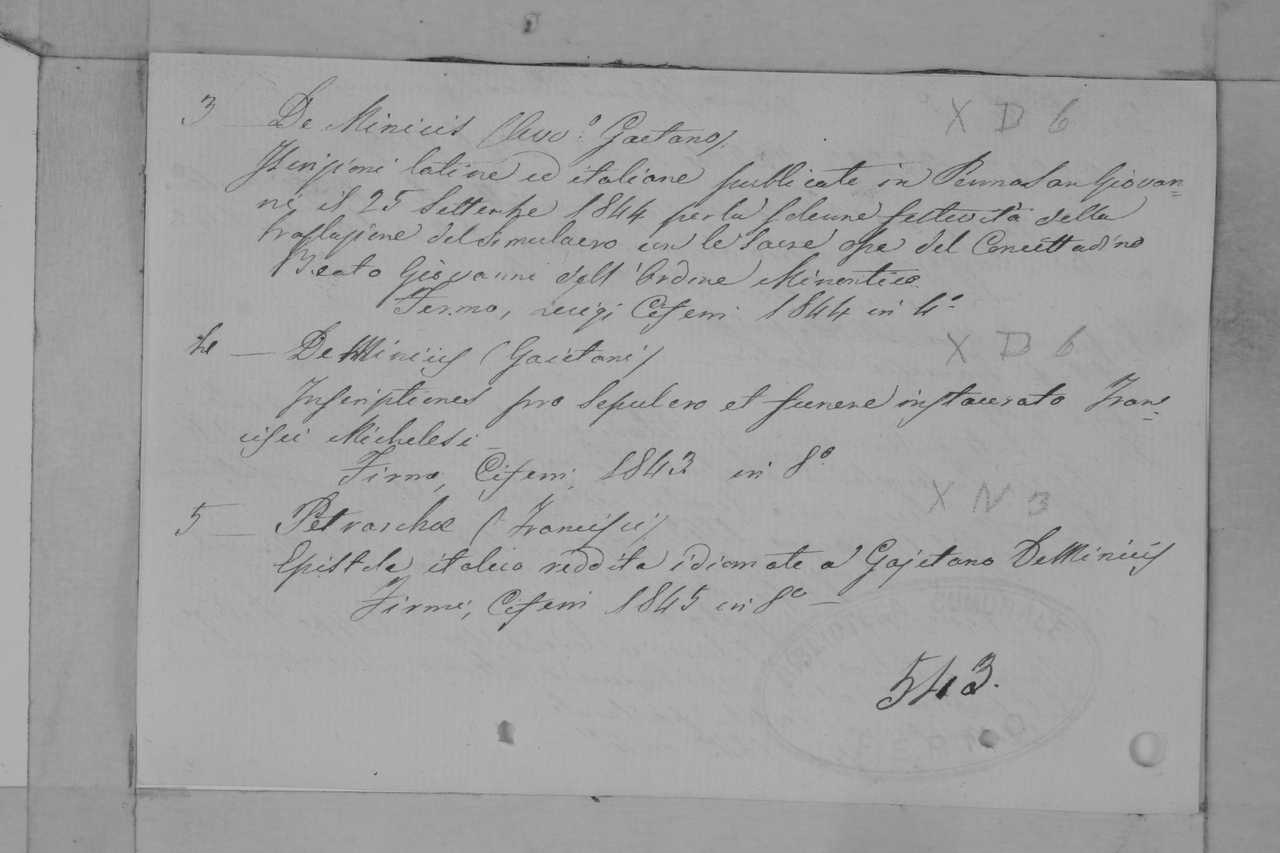 3 — De Minicis (Avv.º Gaetano). X D 6
Iscrizioni latine ed italiane pubblicate in Penna San Giovan=
ni, il 25 Settembre 1844 per la solenne festività della
traslazione del simulacro con le sacre ossa del Concittadino
Beato Giovanni dell'Ordine Minoritico.
Fermo, Luigi Ciferri 1844 in 4º
4 — De Minicis (Gaietani) X D 6
Inscriptiones pro sepulcro et funere instaurato Fran=
cisci Michelesi —
Firmo, Ciferri, 1843 in 8º
X N 3
5 — Petrarchæ (Francisci)
Epistola italico reddita idiomate a Gajetano De Minicis
Firmi, Ciferri 1845 in 8º —
BIBLIOTECA COMUNALE
543.
FERMO